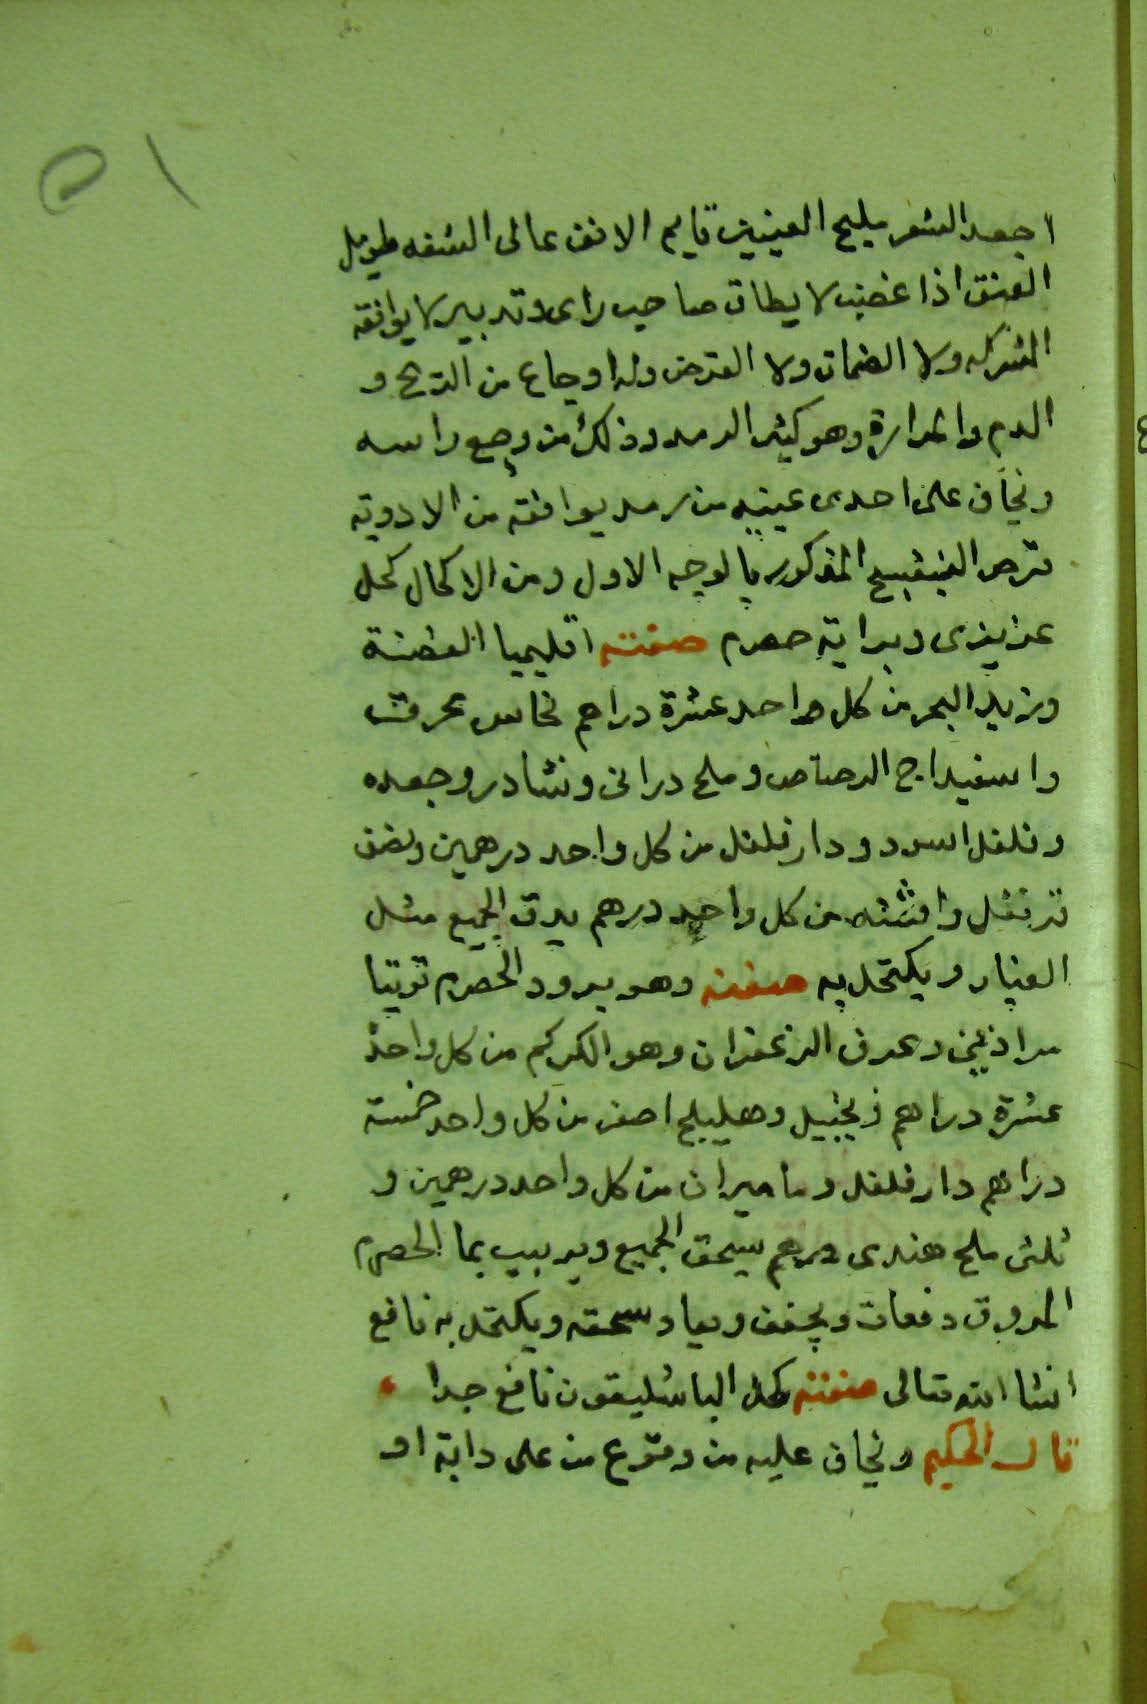 ٥١
اجعد الشعر مليح العينين قايم الانف عالى الشفه طويل
العنق اذا غضب لا يطاق صاحب راى وتدبير لا يوافقه
الشركه ولا الضمان ولا القرض وله اوجاع من الريح و
الدم والمرارة وهو كثير الرمد وذلك من وجع راسه
ويخاف على احدى عينيه من رمد يوافقه من الادويه
قرص البنفسج المذكور بالوجه الاول ومن الاكحال كحل
عزيزى وبراية حصرم صفته اقليميا الفضة
وزبد البحر من كل واحد عشرة دراهم نحاس محرق
واسفيداج الرصاص وملح درانى ونشادر وجعده
وفلفل اسود ودار فلفل من كل واحد درهمين ونصف
قرنفل واشنه من كل واحد درهم يدق الجميع مثل
الغبار ويكتحل به صفته وهو برود الحصرم توتيا
وعرق الزعفران وهو الكركم من كل واحد
عشرة دراهم زنجبيل وهليلج اصفر من كل واحد خمسة
دراهم دار فلفل وماميران من كل واحد درهمين و
ثلثى ملح هندى درهم يسحق الجميع ويربيب بما الحصرم
المروق دفعات ويجفف ويعاد سحقه ويكتحل به نافع
انشا الله تعالى صفته كحل الباسليقون نافع جدا
قال الحكيم ويخاف عليه من وقوع من على دابة او